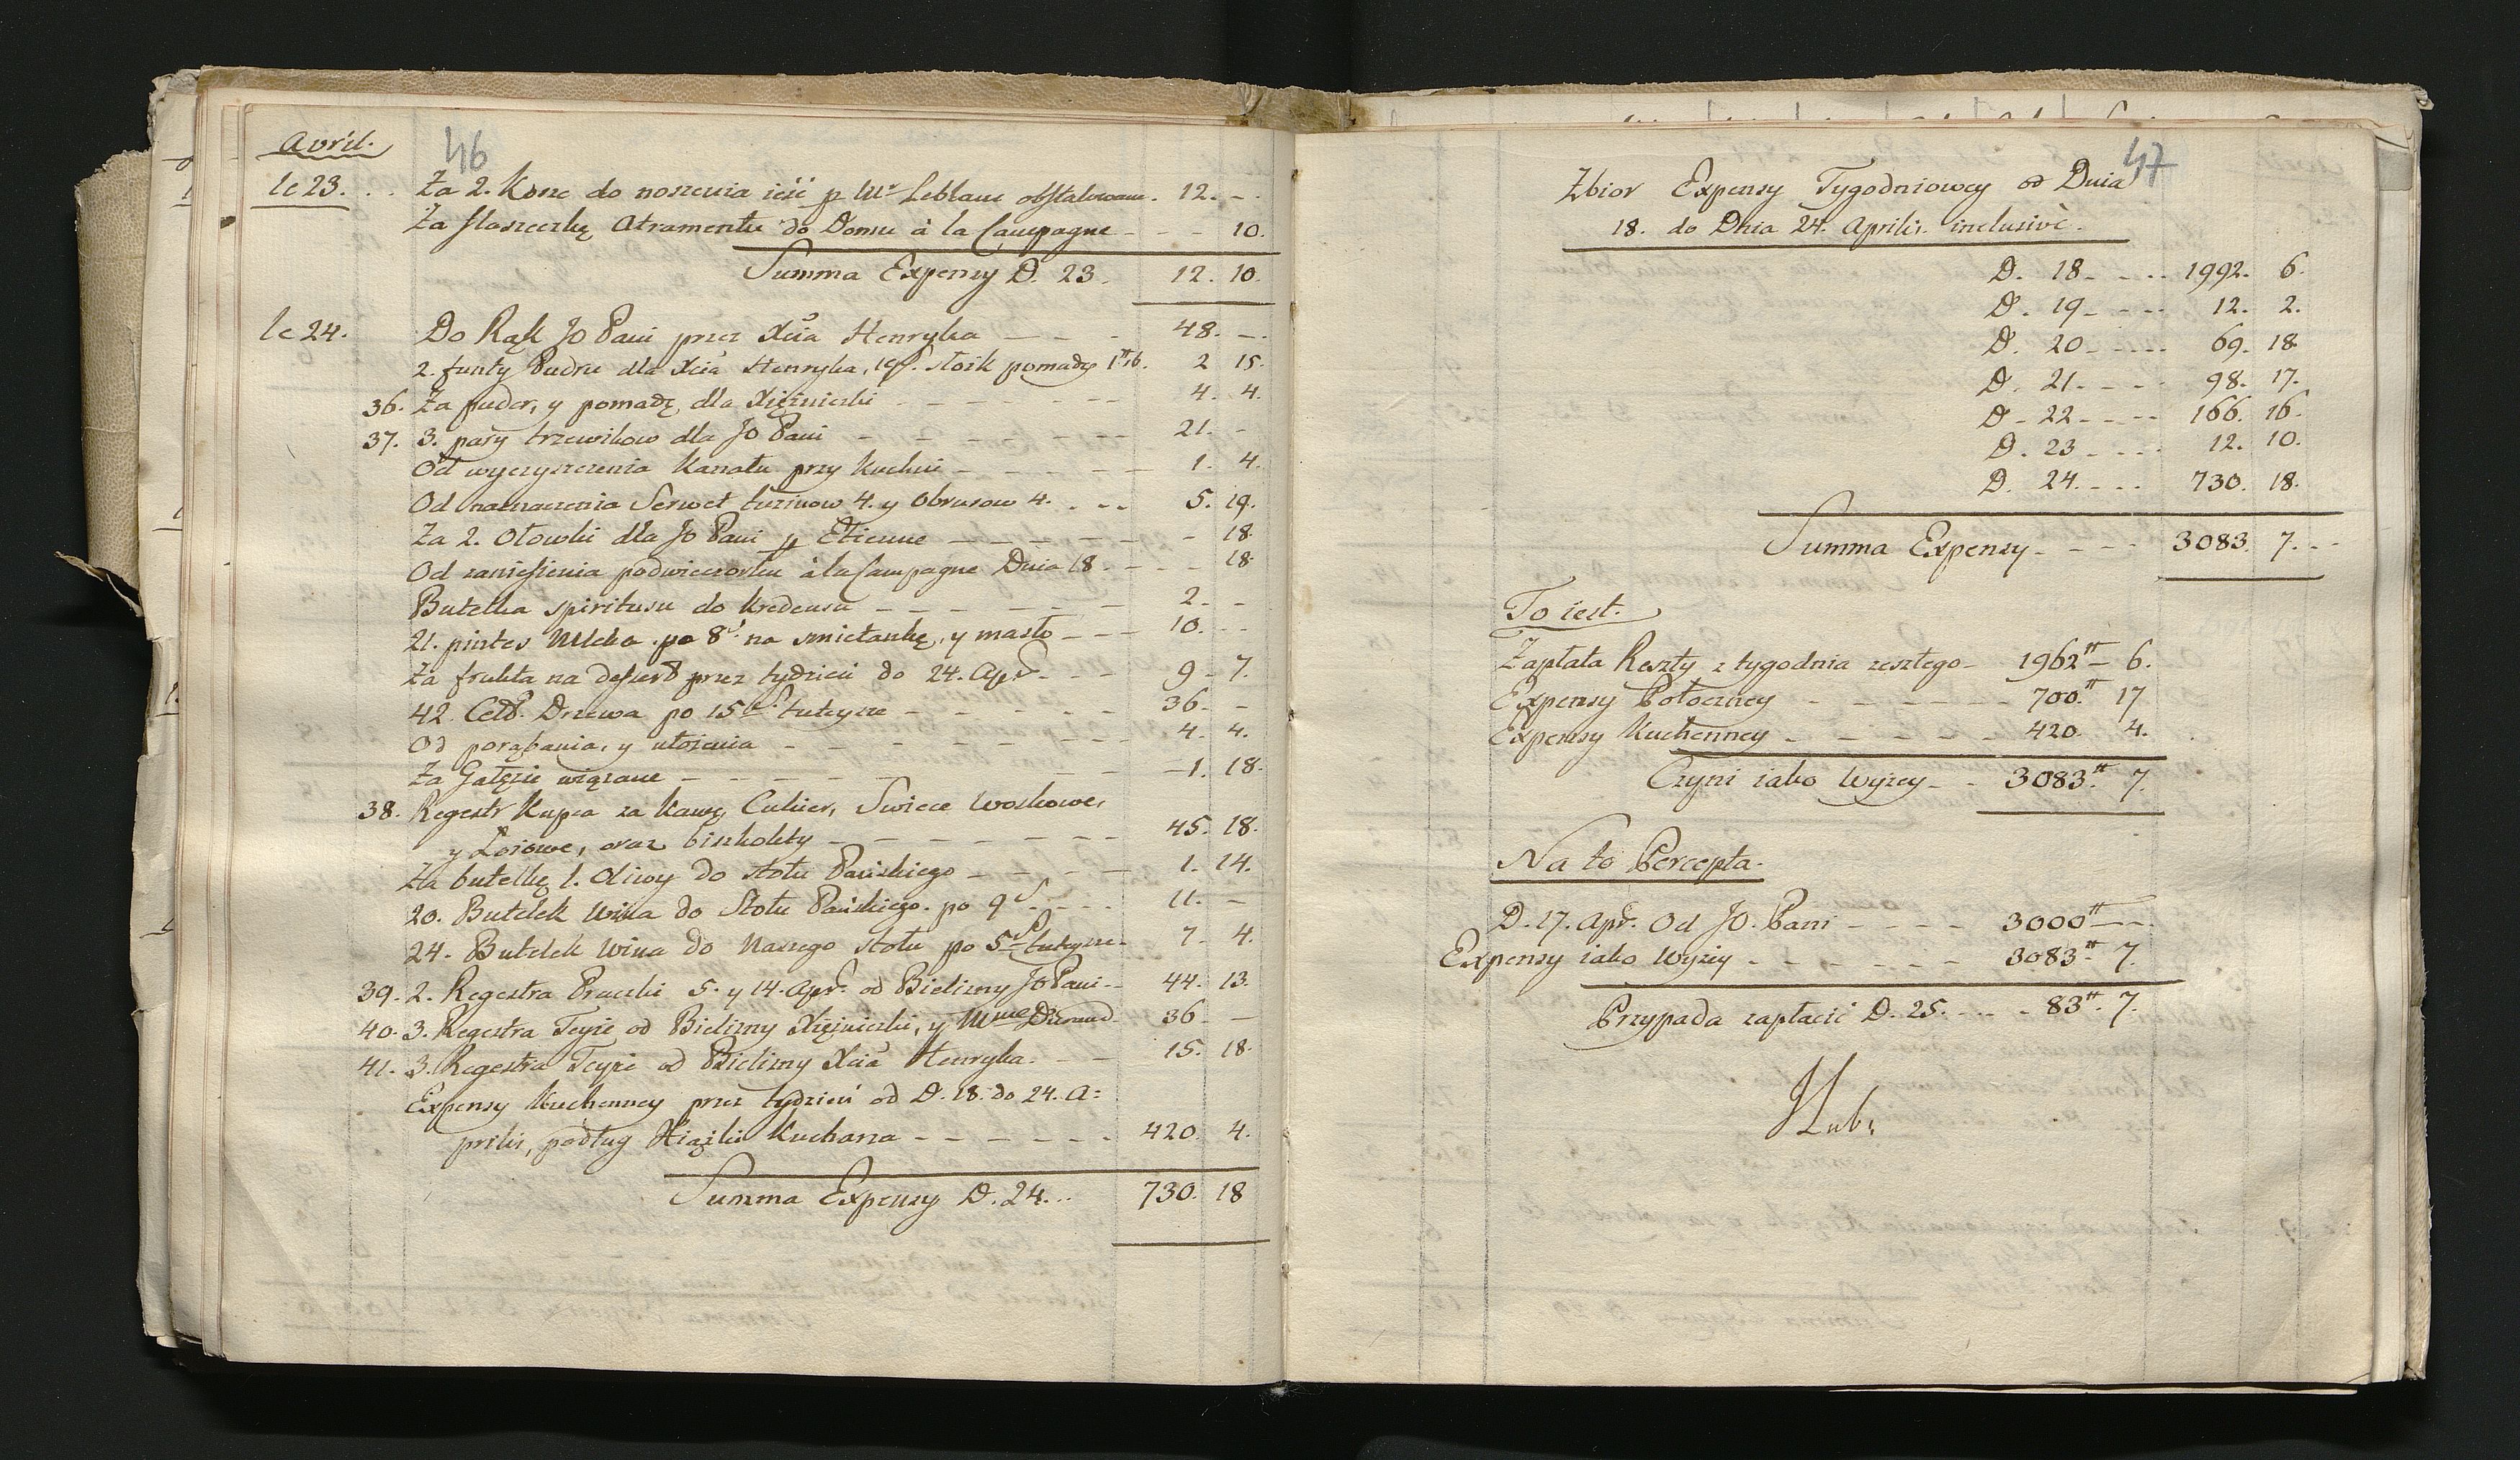 Avril.
46
le 23. . . Za 2. Kosze do noszenia ieść p Mr Leblanc obstalowane. 12. - -
Za flaszeczkę Atramentu do Domu à la Campagne - - - 10.
Summa Expensy D. 23. 12. 10.
le 24. Do Rąk JO Pani przez Xcia Henryka - - - 48. -
2. funty Pudru dla Xcia Henryka, słoik pomady 2 15.
36. Za puder, y pomadę dla Xiężniczki - - - 4. 4.
37. 3. pary trzewikow dla JO Pani - - - 21. -
Od wyczyszczenia Kanału przy Kuchni - - - 1. 4.
Od naznaczenia Serwet tuzinow 4. y Obrusow 4. . - - 5. 19.
Za 2. Ołowki dla JO Pani p Etienne - - - - 18.
Od zaniesienia podwieczorku à la Campagne Dnia 18. - - - 18.
Butelka spiritusu do Kredensu - - - 2. -
21. pintes Mleka po 8s. na smietankę, y masło - - - 10. - -
Za frukta na desserd przez tydzień do 24. Apr. - - - 9 - 7.
42. Drzewa po 15 - - - 36. -
Od porąbania, y ułożenia - - - 4. 4.
Za Gałęzie wiązane - - - 1. 18.
38. Regestr Kupca za Kawę, Cukier, Swiece Woskowe,
y Łoiowe, oraz biszkokty - - - 45. 18.
Za butelkę 1. Oliwy do stołu Pańskiego - - - 1. 14.
20. Butelek Wina do Stołu Pańskiego po 9 - - - 11. -
24. Butelek Wina do Naszego stołu po 5 - 7. 4.
39. 2. Regestra Praczki 5. y 14. Apr. od Bielizny JO Pani - - 44. 13.
40. 3. Regestra Teyże od Bielizny Xiężniczki, y Mme Durand 36 -
41. 3. Regestra Teyże od Bielizny Xcia Henryka. - - 15. 18.
Expensy Kuchenney przez tydzień od D. 18. do 24. A=
prilis, podług Xiążki Kucharza - - - 420. 4.
Summa Expensy D. 24. . . 730. 18
47
Zbior Expensy Tygodniowey od Dnia
18. do Dnia 24. Aprilis. inclusivè.
D. 18. - - - 1992. 6.
D. 19. - - - 12. 2.
D. 20. - - - 69. 18.
D. 21. - - - 98. 17.
D. 22. - - - 166. 16.
D. 23. - - - 12. 10.
D. 24. - - - 730. 18.
Summa Expensy - - - 3083. 7. - -
To iest.
Zapłata Reszty z tygodnia zeszłego - 1962# - 6.
Expensy Potoczney - - - 700.# 17
Expensy Kuchenney - - - 420. 4.
Czyni iako Wyżey - - 3083.# 7.
Na to Percepta.
D. 17. Apr. Od JO. Pani - - - 3000# - -
Expensy iako Wyżey - - - 3083.# 7.
Przypada zapłacić D. 25. - - - 83#. 7.